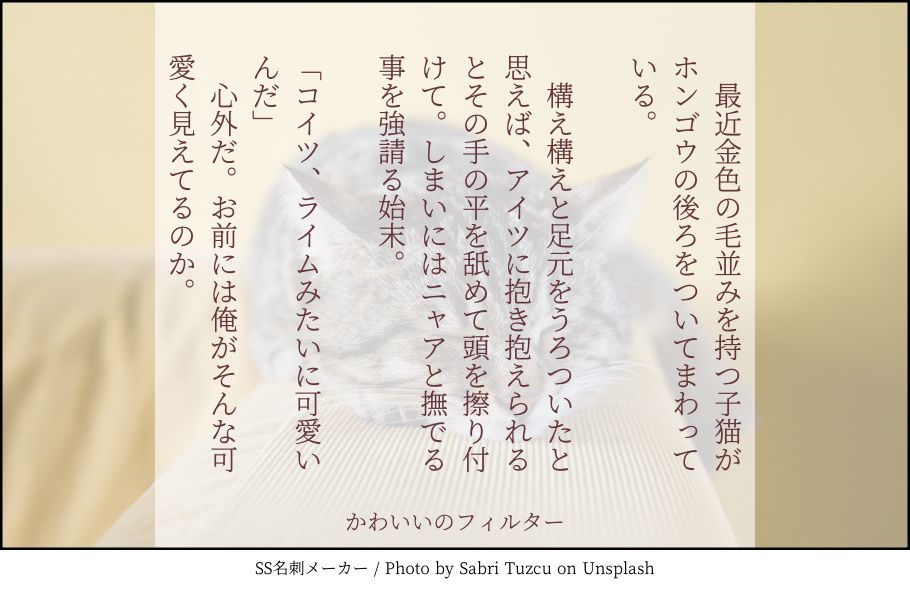 最近金色の毛並みを持つ子猫が
ホンゴウの後ろをついてまわって
いる。
　構え構えと足元をうろついたと
思えば、アイツに抱き抱えられる
とその手の平を舐めて頭を擦り付
けて。しまいにはニャアと撫でる
事を強請る始末。
「コイツ、ライムみたいに可愛い
んだ」
　心外だ。お前には俺がそんな可
愛く見えてるのか。
かわいいのフィルター
SS名刺メーカー / Photo by Sabri Tuzcu on Unsplash